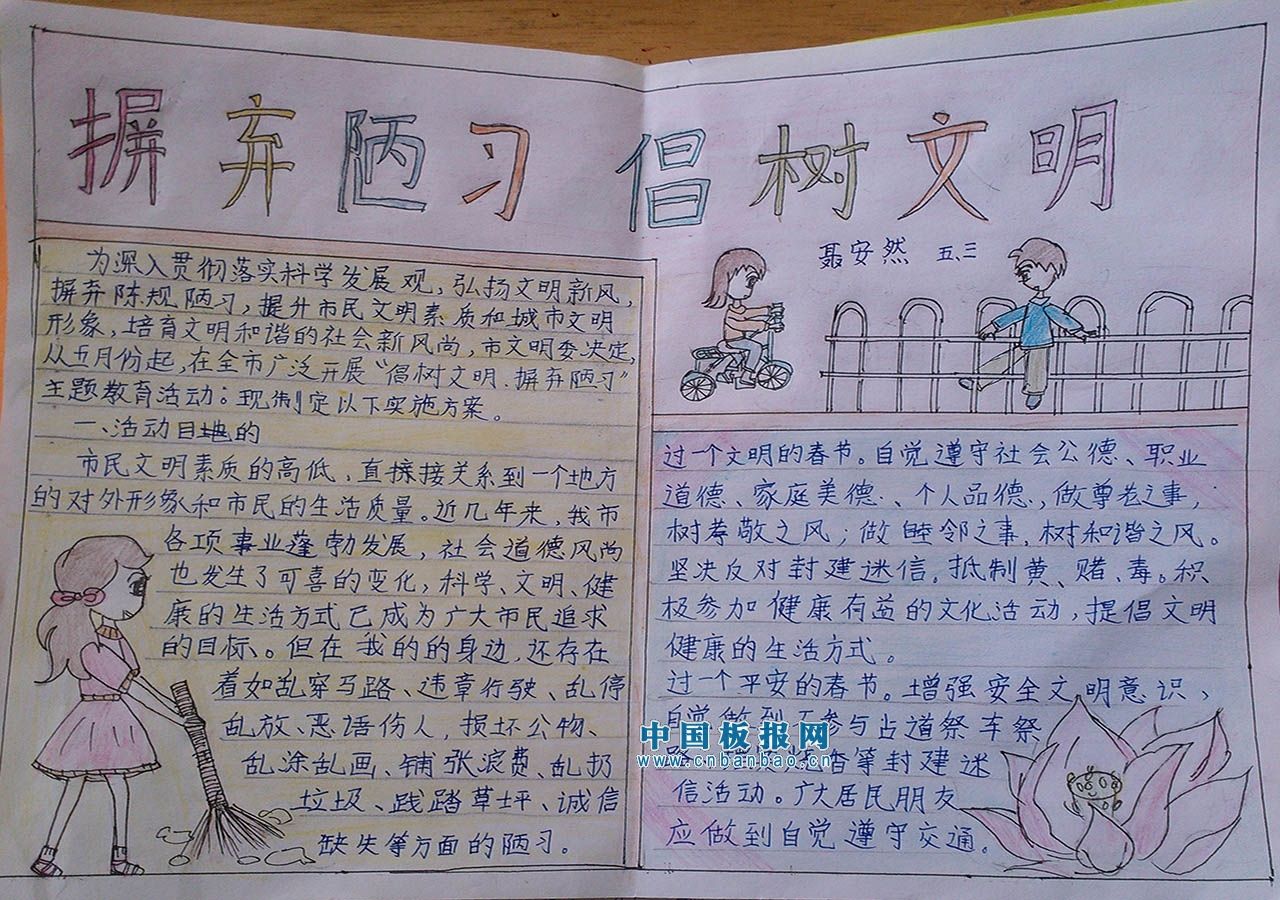 摒弃陋习 倡树文明
聂安然 五.三
为深入贯彻落实科学发展观，弘扬文明新风，
摒弃陈规陋习，提升市民文明素质和城市文明
形象，培育文明和谐的社会新风尚，市文明委决定，
从五月份起，在全市广泛开展“倡树文明、摒弃陋习”
主题教育活动：现制定以下实施方案。
一、活动目的
市民文明素质的高低，直接关系到一个地方
的对外形象和市民的生活质量。近几年来，我市
各项事业蓬勃发展，社会道德风尚
也发生了可喜的变化，科学、文明、健
康的生活方式已成为广大市民追求
的目标。但在我的的身边，还存在
着如乱穿马路、违章行驶、乱停
乱放、恶语伤人，损坏公物、
乱涂乱画、铺张浪费、乱扔
垃圾、践踏草坪、诚信
缺失等方面的陋习。
过一个文明的春节。自觉遵守社会公德、职业
道德、家庭美德、个人品德，做尊老之事，
树孝敬之风；做睦邻之事，树和谐之风。
坚决反对封建迷信，抵制黄、赌、毒。积
极参加健康有益的文化活动，提倡文明
健康的生活方式。
过一个平安的春节。增强安全文明意识，
自觉做到不参与占道祭车祭
路、香等封建迷
信活动。广大居民朋友
应做到自觉遵守交通。
中国板报网
www.cnbanbao.cn